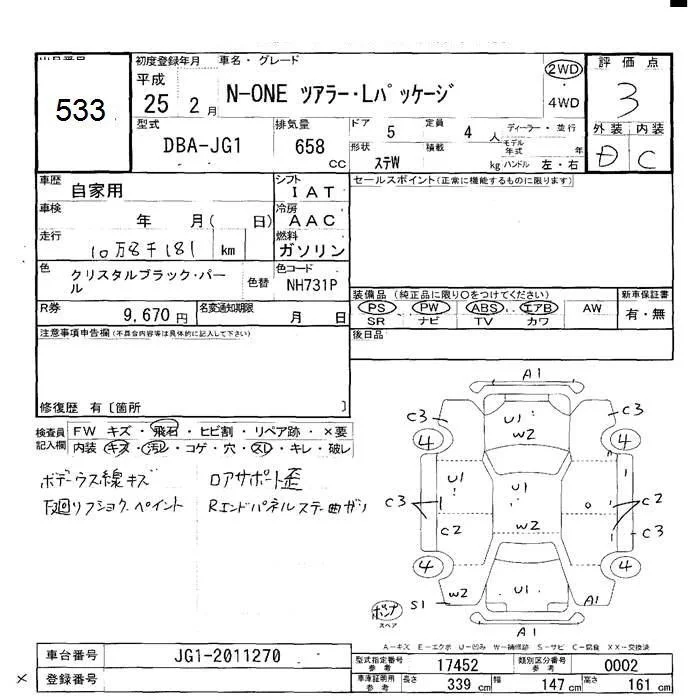 533
初度登録年月
平成
25 2月
車名・グレード
N-ONE ツアラー・Lパッケージ
2WD
・
4WD
評価点
3
外装 内装
D C
型式
DBA-JG1
排気量
658
CC
ドア
5
定員
4
人
形状
ステW
積載
kg
ディーラー・並行
モデル
年式
年
ハンドル 左・右
車歴
自家用
シフト
IAT
セールスポイント(正常に機能するものに限ります)
車検
年 月( 日)
冷房
AAC
走行
10万8千181
km
燃料
ガソリン
色
クリスタルブラック・パー
ル
色替
色コード
NH731P
装備品(純正品に限り○をつけてください)
PS PW ABS エアB AW
SR ナビ TV カワ
新車保証書
有・無
R券
9,670円
名変通知期限
月 日
後日品
注意事項申告欄(不具合内容等は具体的に記入して下さい)
修復歴 有〔箇所 〕
検査員
記入欄
FW キズ・飛石・ヒビ割・リペア跡・×要
内装・キズ・汚レ・コゲ・穴・スレ・キレ・破レ
ボデーウス線キズ ロアサポート歪
下廻リフショク、ペイント Rエンドパネルステー曲ガリ
A1
C3 U1 C3
W2
4 4
U1 U1
C3 C2
C2 W2 C3
4 4
W2 U1
S1 A1
A1
スペア
A-キズ E-エクボ U-凹み W-補修跡 S-サビ C-腐食 XX-交換済
車台番号
JG1-2011270
× 登録番号
型式指定番号
参考
17452
類別区分番号
参考
0002
車庫証明用
参考
長さ
339 cm
幅
147 cm
高さ
161 cm